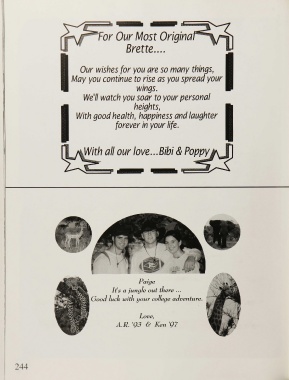 For Our Most Original
Brette....
Our wishes for you are so many things,
May you continue to rise as you spread your
wings.
We'll watch you soar to your personal
heights,
With good health, happiness and laughter
forever in your life.
With all our love...Bibi & Poppy
Paige
It's a jungle out there ...
Good luck with your college adventure.
Love,
A.R. '93 & Ken '97
244